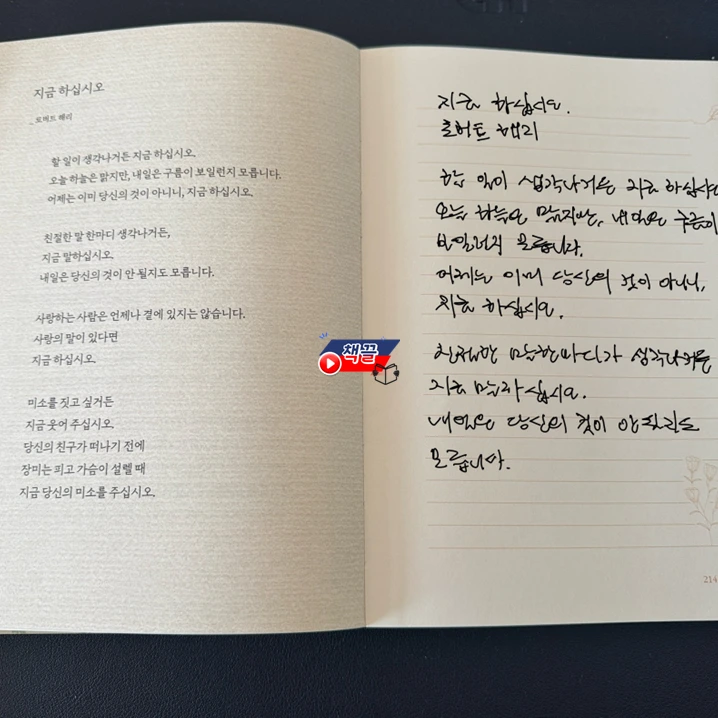 지금 하십시오
_ 로버트 해리
할 일이 생각나거든 지금 하십시오.
오늘 하늘은 맑지만, 내일은 구름이 보일런지 모릅니다.
어제는 이미 당신의 것이 아니니, 지금 하십시오.
친절한 말 한마디 생각나거든,
지금 말하십시오.
내일은 당신의 것이 안 될지도 모릅니다.
사랑하는 사람은 언제나 곁에 있지는 않습니다.
사랑의 말이 있다면
지금 하십시오.
미소를 짓고 싶거든
지금 웃어 주십시오.
당신의 친구가 떠나기 전에
장미는 피고 가슴이 설렐 때
지금 당신의 미소를 주십시오.
책끌
지금 하십시오.
로버트 해리
할 일이 생각나거든 지금 하십시오
오늘 하늘은 맑지만, 내일은 구름이
보일런지 모릅니다.
어제는 이미 당신의 것이 아니니,
지금 하십시오.
친절한 말한마디가 생각나거든
지금 말하십시오.
내일은 당신의 것이 안 될지도
모릅니다.
214